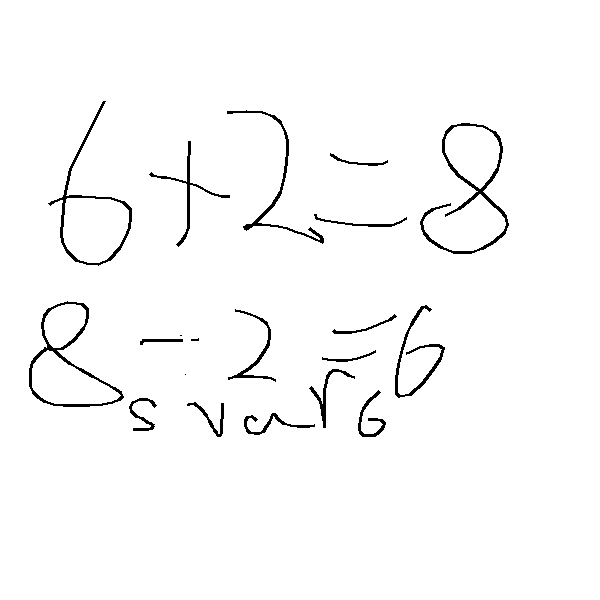 6+2=8
8-2=6
svar 6